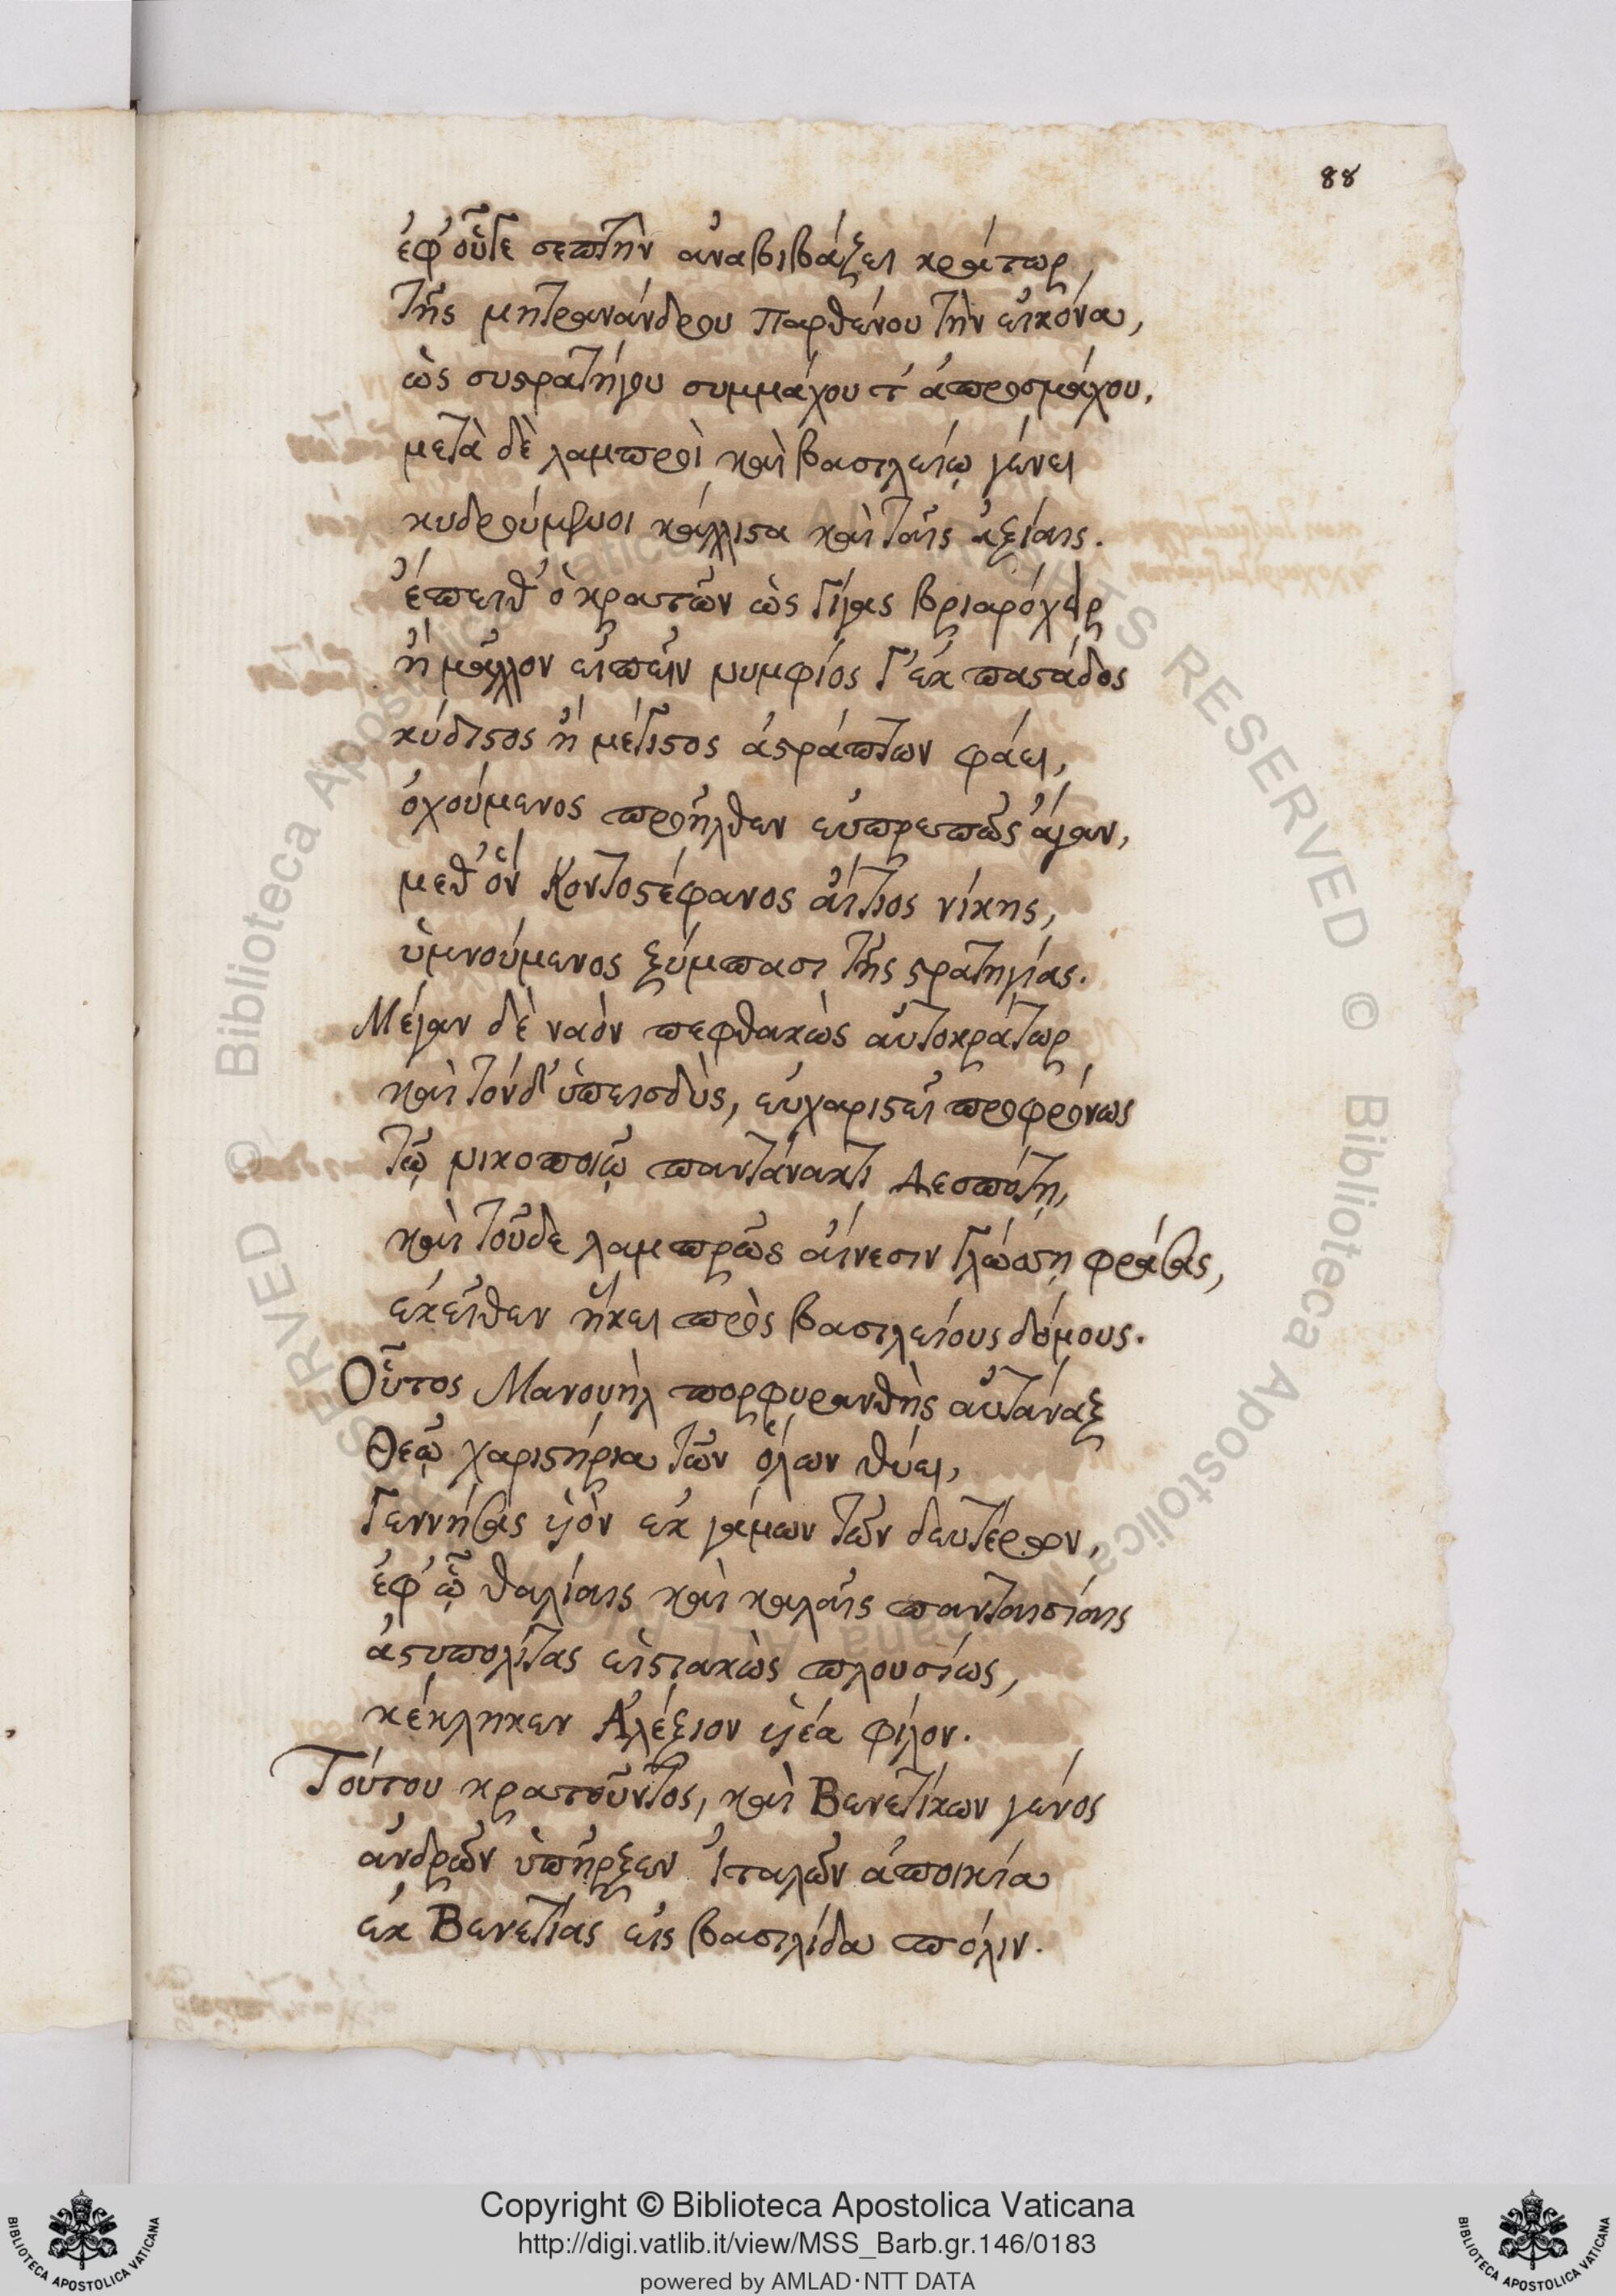 88
ἐφ' οὗ γε σεπτὴν ἀναβιβάζει κράτωρ
τῆς μητρανάνδρου Παρθένου τὴν εἰκόνα,
ὡς συστρατήγου συμμάχου τ' ἀπροσμάχου.
μετὰ δὲ λαμπροὶ καὶ βασιλείῳ γένει
κυδρούμενοι κάλλιστα καὶ ταῖς ἀξίαις.
ἔπειθ' ὁ κρατῶν ὡς γίγας βριαρόχειρ
ἢ μᾶλλον εἰπεῖν νυμφίος γ' ἐκ παστάδος
κύδιστος ἢ μέγιστος ἀστράπτων φάει,
ὀχούμενος προῆλθεν εὐπρεπῶς ἄγαν,
μεθ' ὃν Κοντοστέφανος αἴτιος νίκης,
ὑμνούμενος ξύμπασι τῆς στρατηγίας.
Μέγαν δὲ ναὸν πεφθακὼς αὐτοκράτωρ
καὶ τόνδ' ὑπεισδὺς, εὐχαριστεῖ προφρόνως
τῷ νικοποιῷ παντάνακτι Δεσπότῃ,
καὶ τοῦδε λαμπρῶς αἴνεσιν γλώσσῃ φράσας,
ἐκεῖθεν ἥκει πρὸς βασιλείους δόμους.
Οὗτος Μανουὴλ πορφυρανθὴς αὐτάναξ
Θεῷ χαριστήρια τῶν ὅλων θύει,
γεννήσας υἱὸν ἐκ γάμων τῶν δευτέρων,
ἐφ' ᾧ θαλίαις καὶ καλαῖς πανταισίαις
ἀστυπολίτας εἱστιακὼς πλουσίως,
κέκληκεν Ἀλέξιον υἱέα φίλον.
Τούτου κρατοῦντος, καὶ Βενετίκων γένος
ἀνδρῶν ὑπῆρξεν Ἰταλῶν ἀποικία
ἐκ Βενετίας εἰς βασιλίδα πόλιν.
Copyright © Biblioteca Apostolica Vaticana
http://digi.vatlib.it/view/MSS_Barb.gr.146/0183
powered by AMLAD·NTT DATA